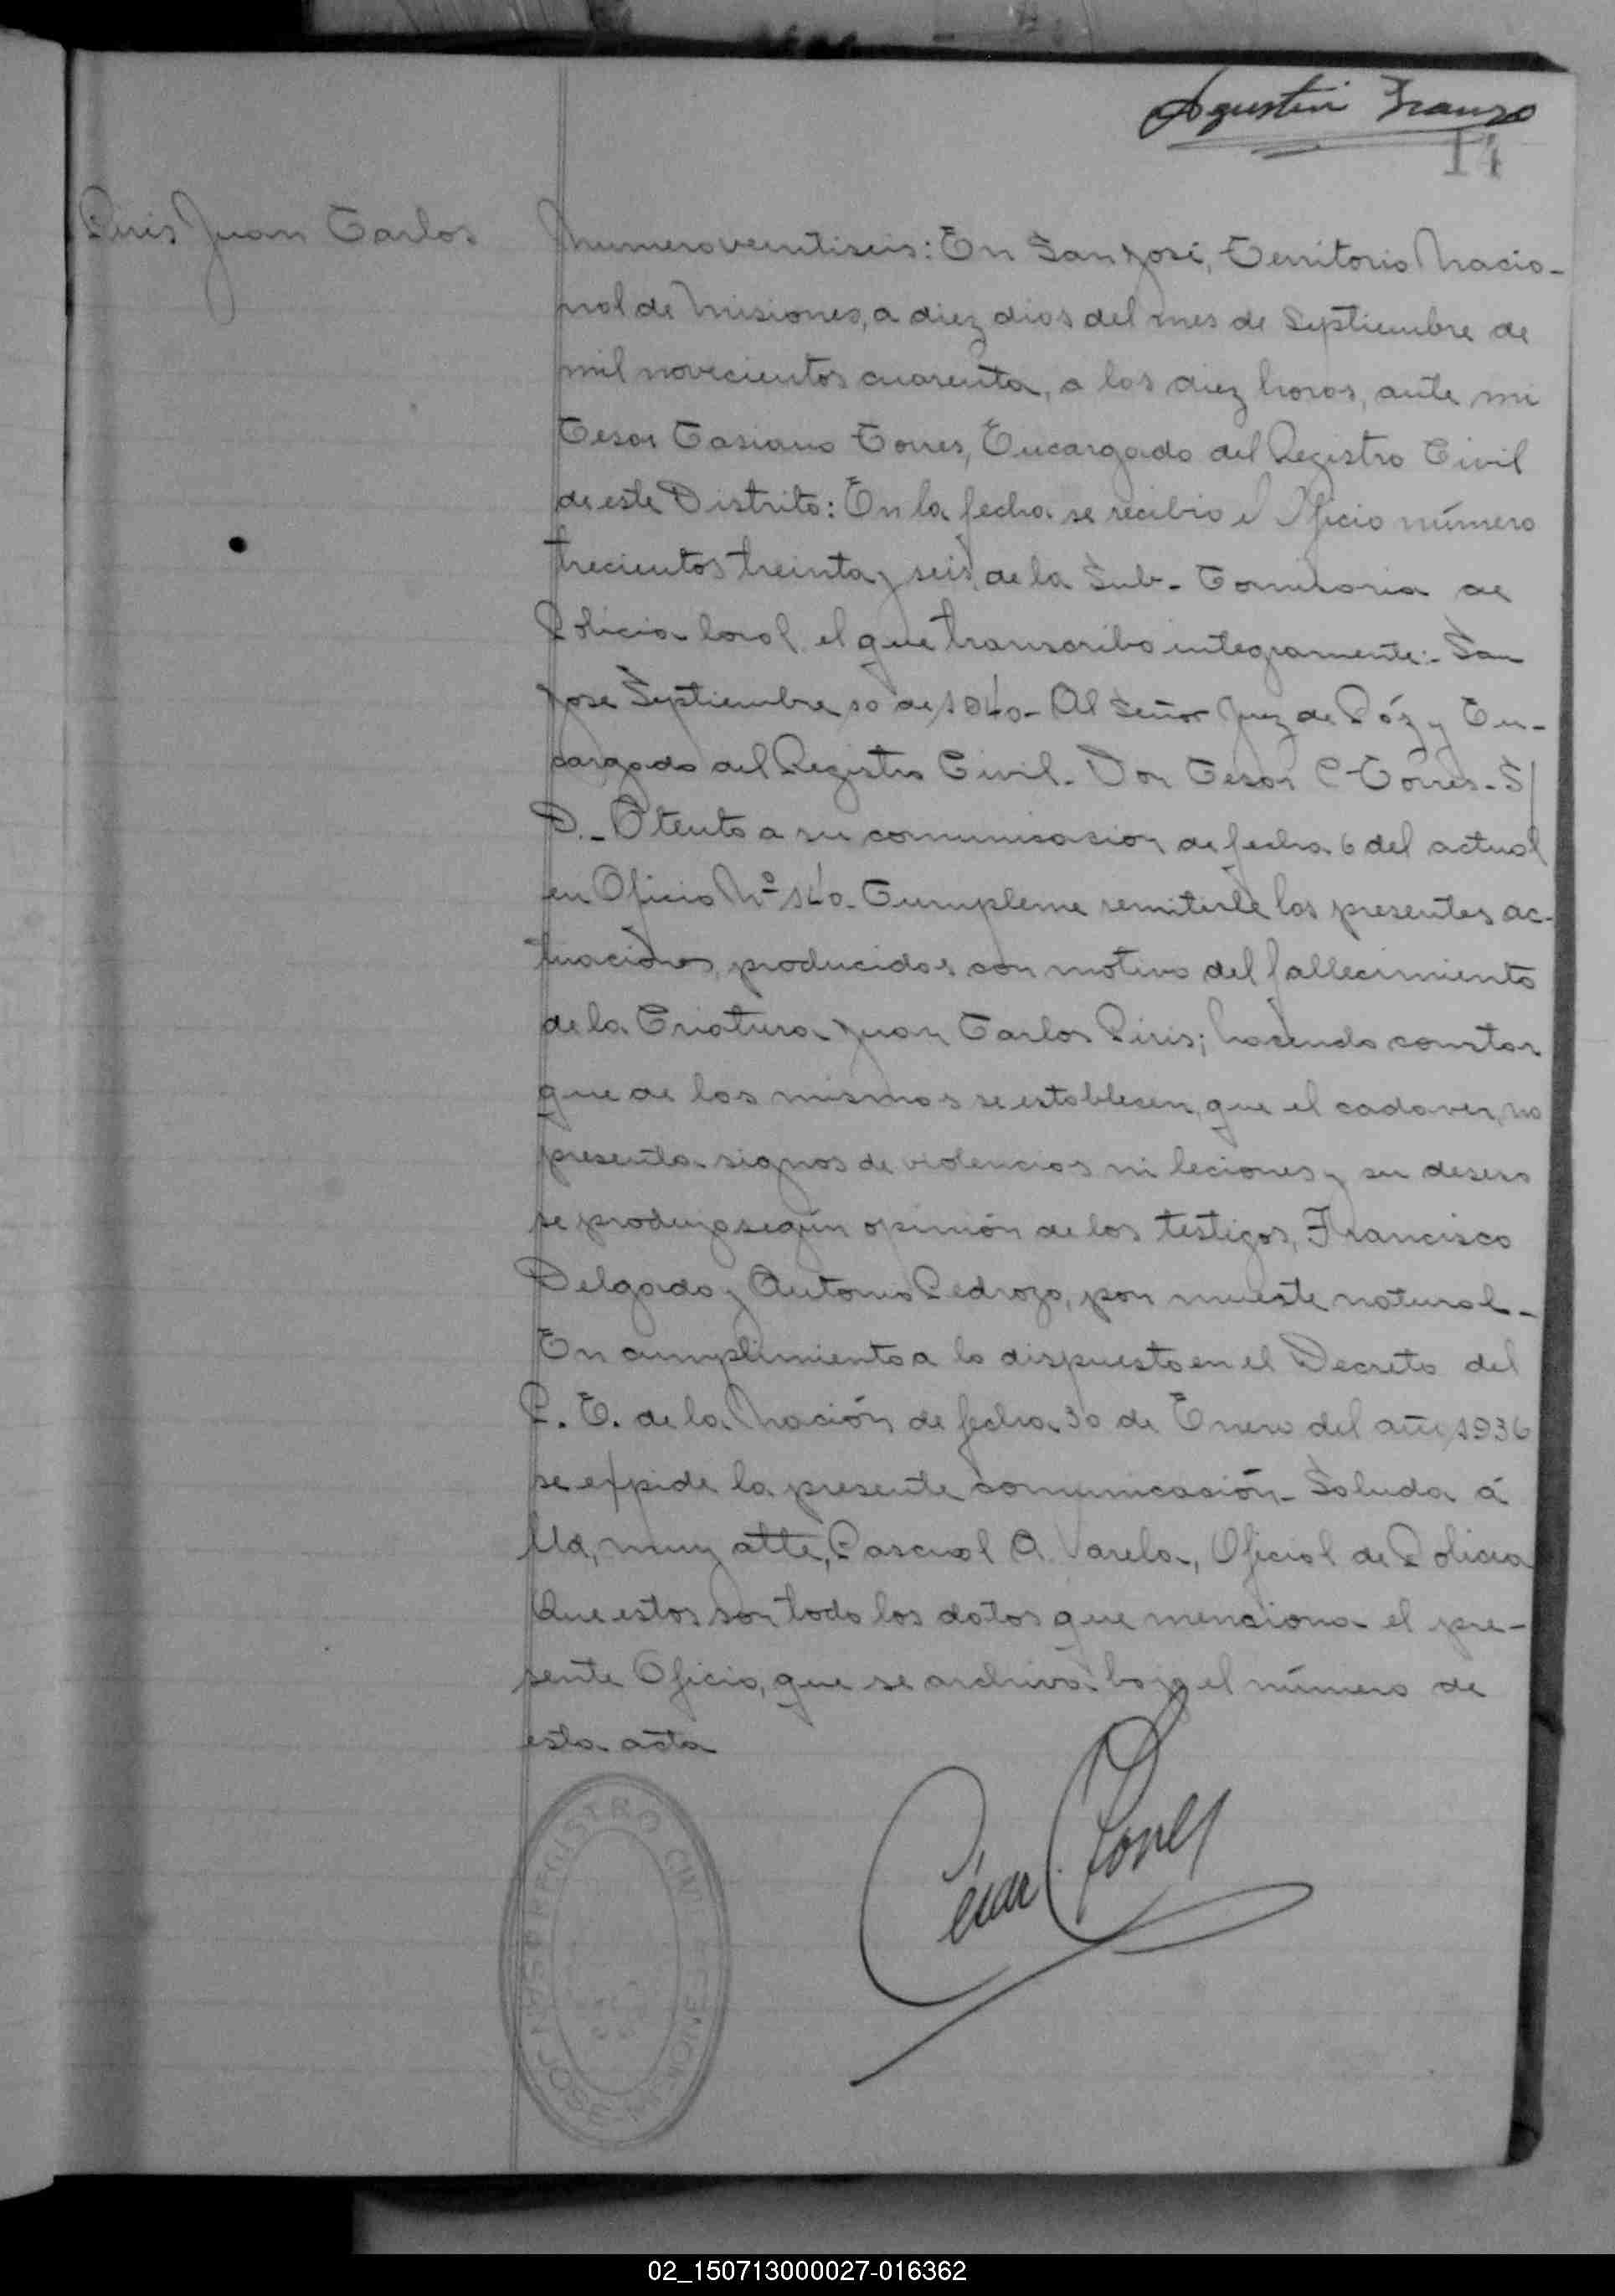 Agustin Franzo
14
Piris Juan Carlos
Numero veintiseis: En San José, Territorio Nacio-
nal de Misiones, a diez dias del mes de Septiembre de
mil novecientos cuarenta, a las diez horas, ante mi
Cesar Casiano Torres, Encargado del Registro Civil
de este Distrito: En la fecha se recibio el Oficio número
trecientos treinta y seis, de la Sub-Comisaria de
Policia local, el que transcribo integramente:- San
Jose Septiembre 10 de 1940- Al Señor Juez de Páz y En-
cargado del Registro Civil- Don Cesar C. Torres- S/
D.- Atento a su comunicasion de fecha 6 del actual
en Oficio Nº 140- Cumpleme remitirle las presentes ac-
tuaciones, producidas con motivo del fallecimiento
de la Criatura Juan Carlos Piris; haciendo constar
que de las mismas se establecen, que el cadaver, no
presenta signos de violencias ni leciones y su deseso
se produzo según opinión de los testigos, Francisco
Delgado y Antonio Pedrozo, por mueste natural-
En cumplimiento a lo dispuesto en el Decreto del
P. E. de la Nación de fecha 30 de Enero del año 1936
se expide la presente comunicasión- Saluda á
Ud, muy atte, Pascual A. Varela, Oficial de Policia
Que estos son todo los datos que menciona el pre-
sente Oficio, que se archiva bajo el número de
esta acta
César C Torres
REGISTRO CIVIL
SAN JOSE
02_150713000027-016362